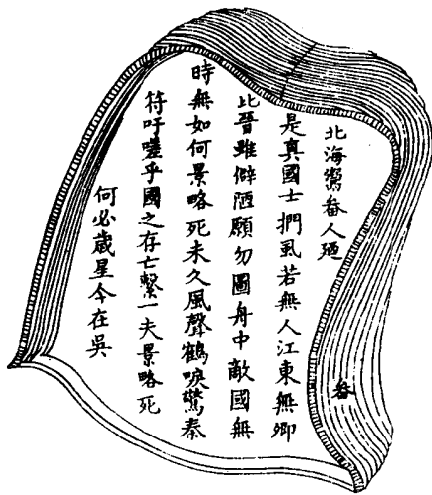 畚
北海鬻畚人廼
是真國士捫虱若無人江東無卿
比晉雖僻陋願勿圖舟中敵國無
時無如何景略死未久風聲鶴唳驚秦
符吁嗟乎國之存亡繫一夫景略死
何必歲星今在吳